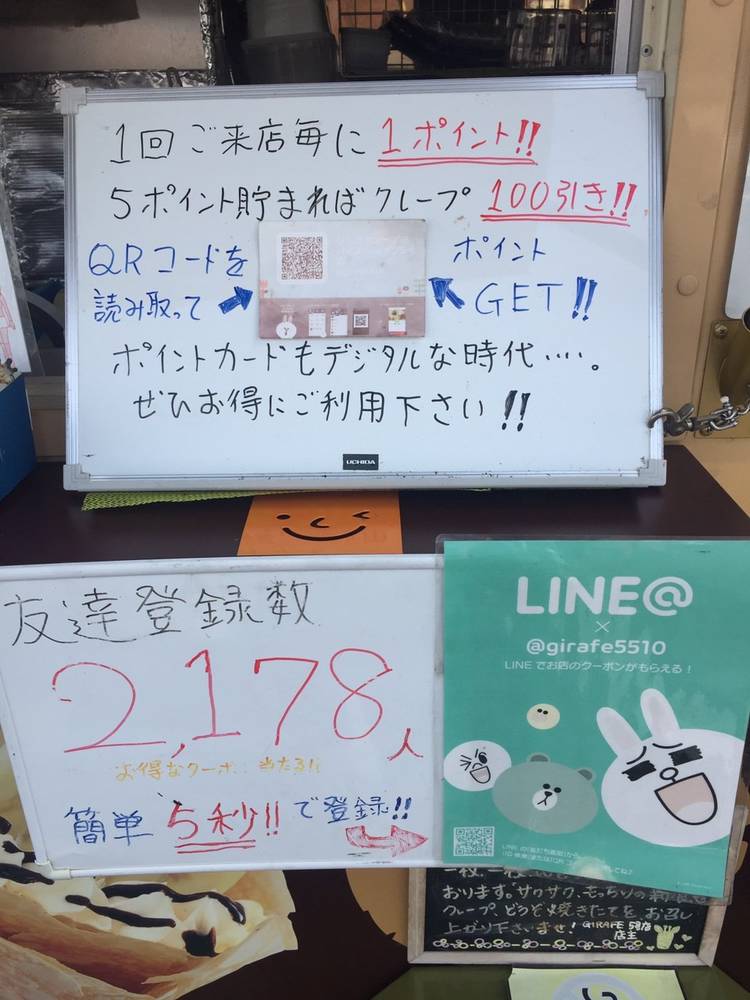 1回ご来店毎に 1ポイント!!
5ポイント貯まればクレープ 100引き!!
QRコードを
読み取って
ポイント
GET!!
ポイントカードもデジタルな時代‥‥。
ぜひお得にご利用下さい!!
UCHIDA
友達登録数
2,178人
お得なクーポン 当たる!!
簡単 5秒!! で登録!!
LINE@
×
@girafe5510
LINEでお店のクーポンがもらえる!
おります。サクサク、もっちりの
クレープ、どうぞ焼きたてを お召し
上がり下さいませ! GIRAFE
店主